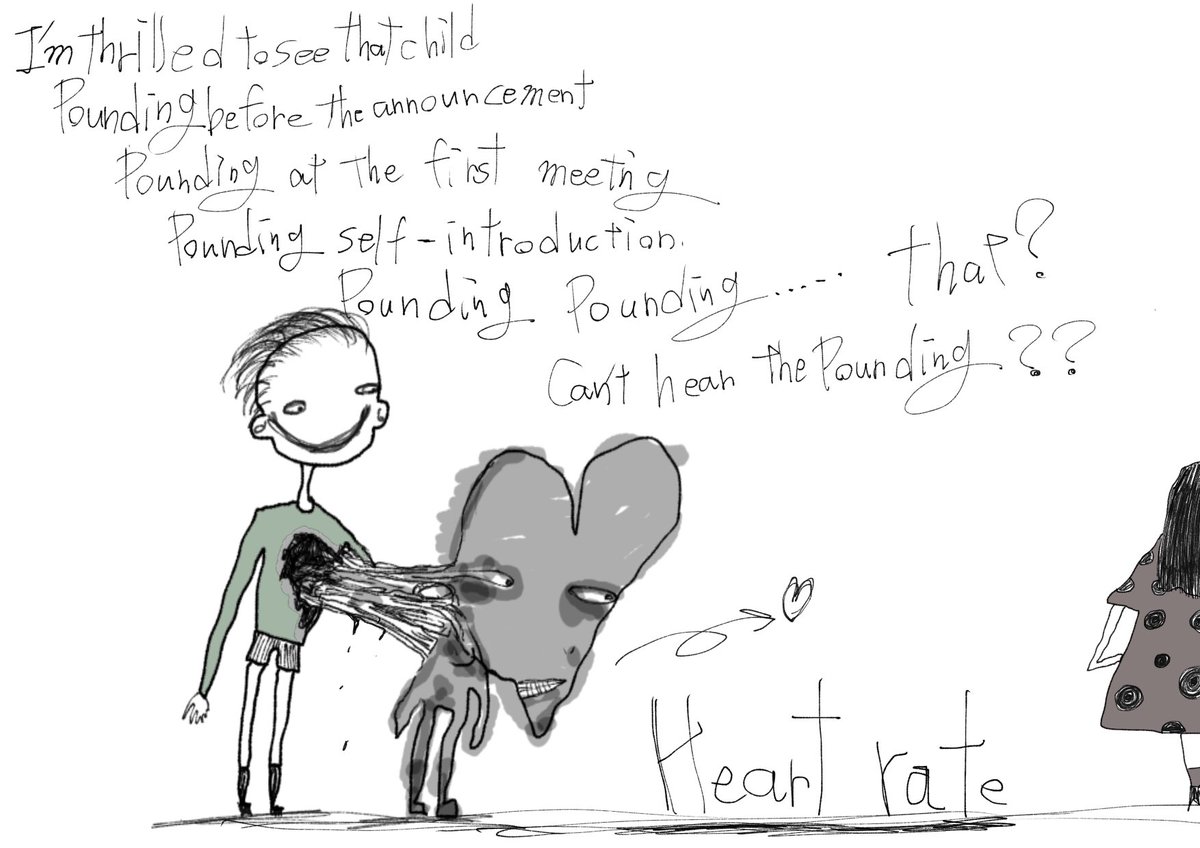 I'm thrilled to see that child
Pounding before the announcement
Pounding at The first meeting
Pounding self-introduction.
Pounding Pounding...... that?
Can't hear the Pounding??
Heart rate